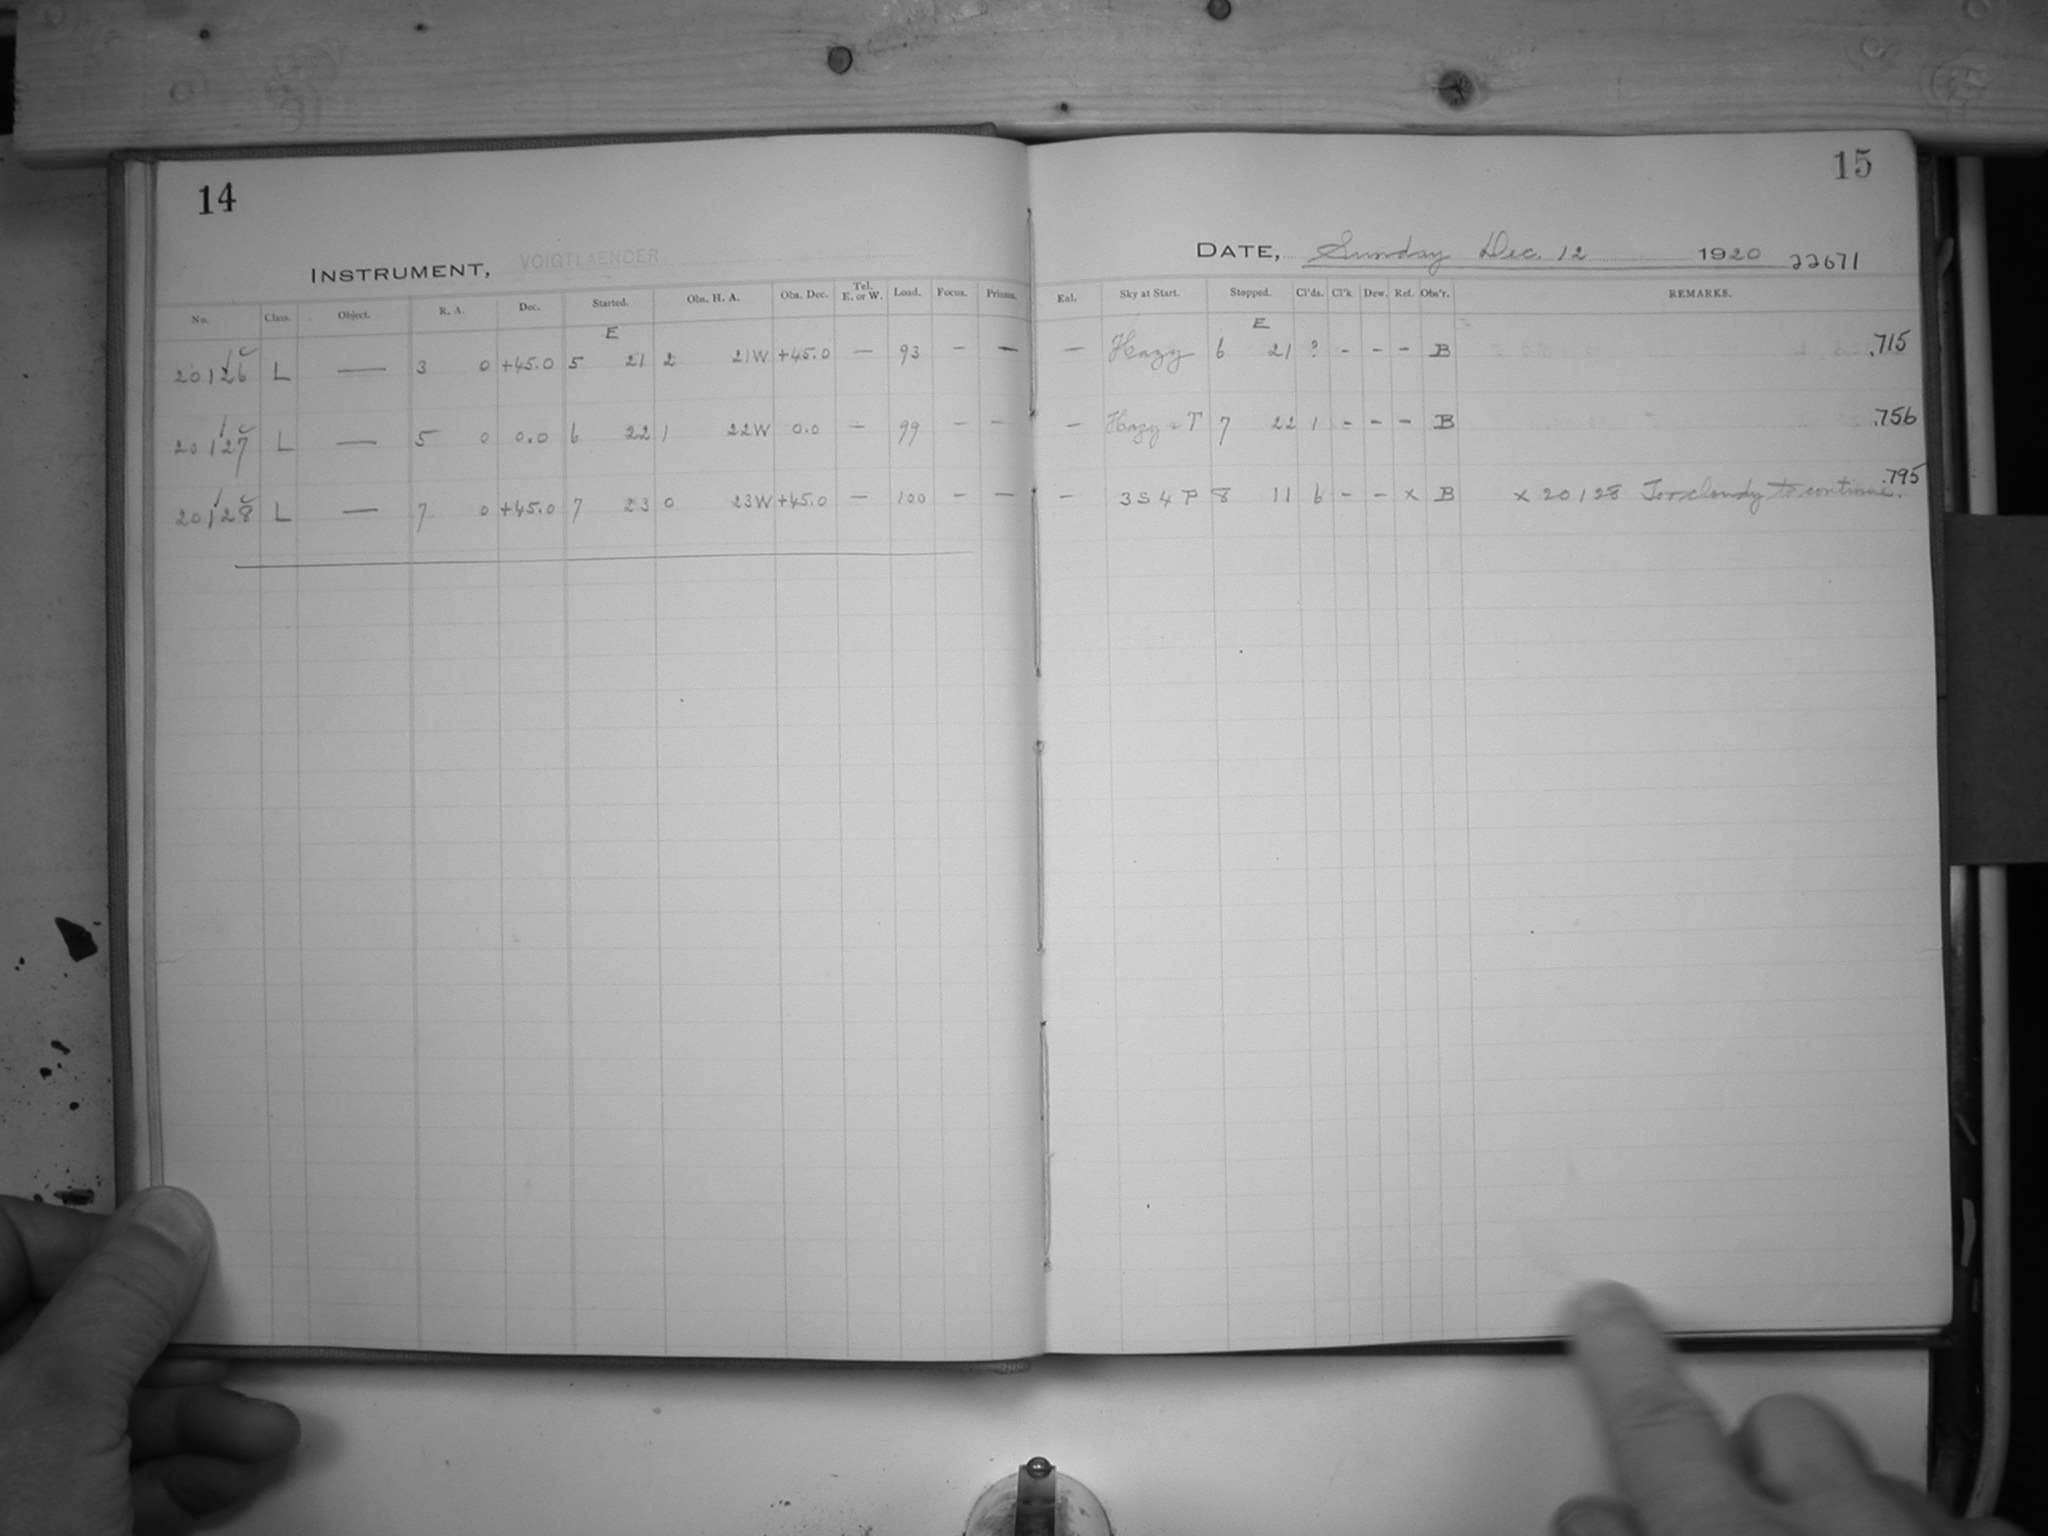 14
INSTRUMENT, VOIGTLAENDER
No. Class. Object. R. A. Dec. Started. Obs. H. A. Obs. Dec. Tel. E. or W. Load. Focus. Prisms.
E
20126 L — 3 0 +45.0 5 21 2 21W +45.0 — 93 — —
20127 L — 5 0 0.0 6 22 1 22W 0.0 — 99 — —
20128 L — 7 0 +45.0 7 23 0 23W +45.0 — 100 — —
15
DATE, Sunday Dec. 12 1920 22671
Eal. Sky at Start. Stopped. Cl'ds. Cl'k. Dew. Ref. Obs'r. REMARKS.
E
— Hazy 6 21 ? - - - B .715
— Hazy + T 7 22 1 - - - B .756
— 3 S 4 P 8 11 6 - - x B x 20128 Too cloudy to continue. .795